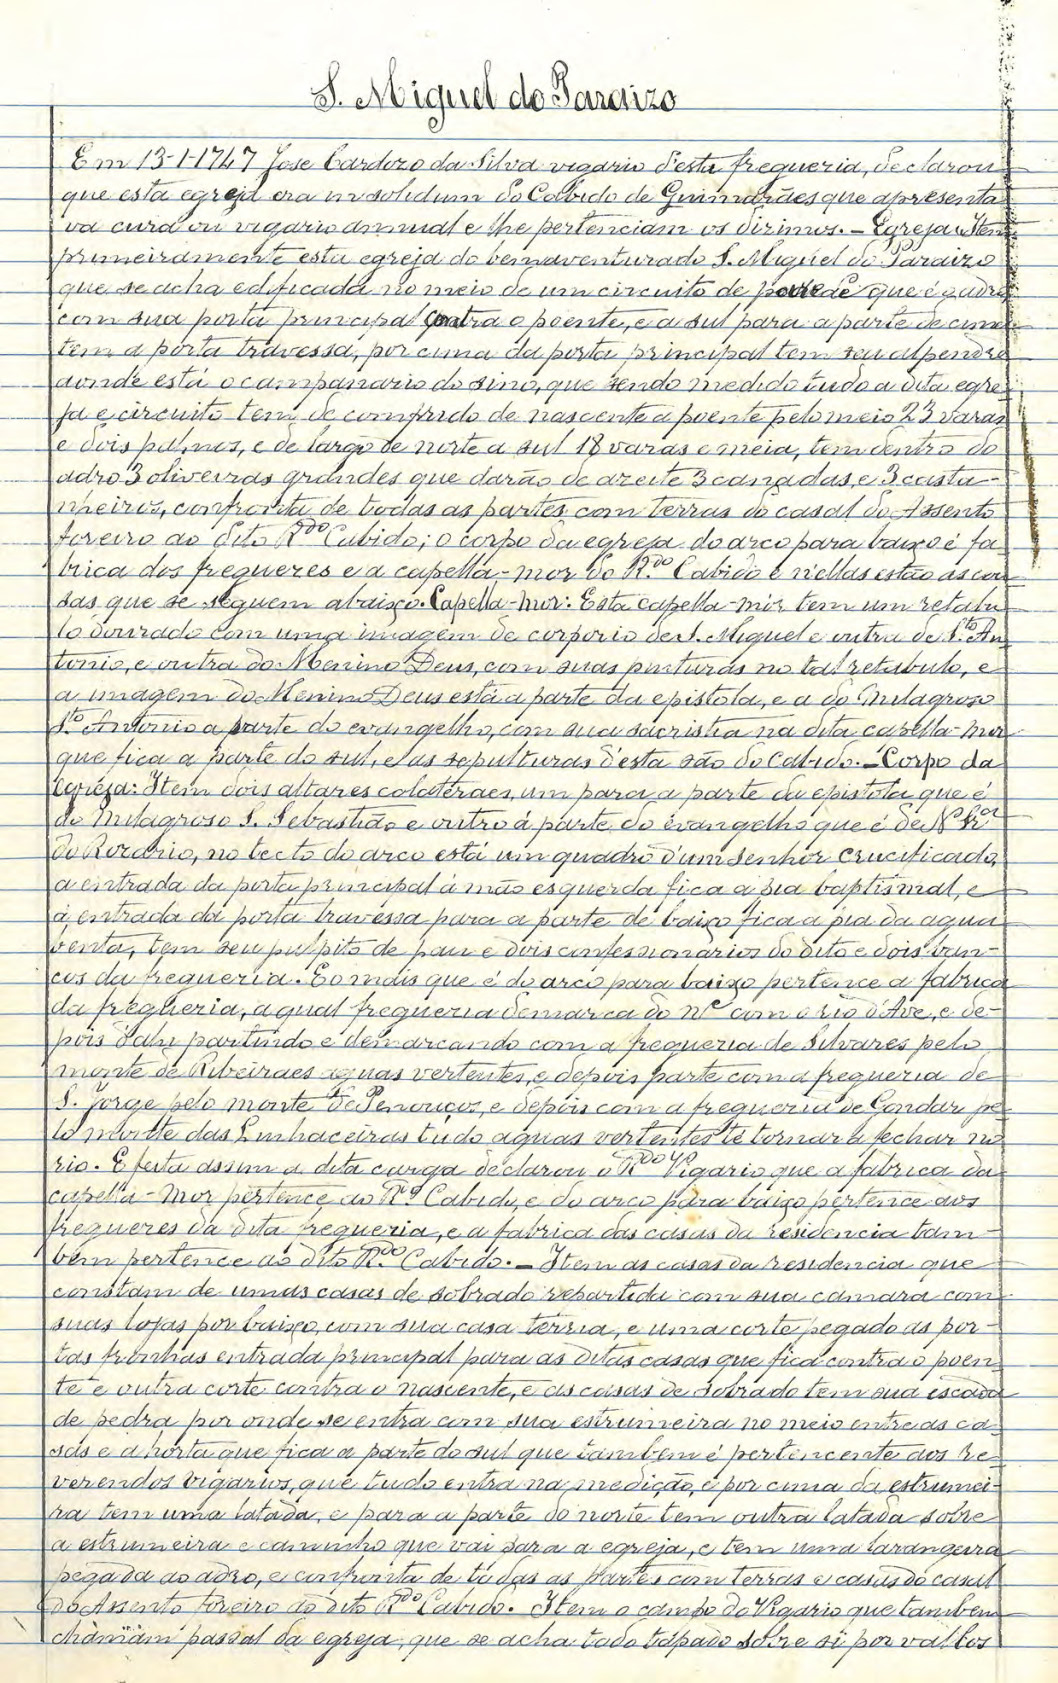 S. Miguel do Paraizo
Em 13-1-1747 Jose Cardozo da Silva vigario d'esta freguezia, declarou
que esta egreja era in solidum do Cabido de Guimarães que apresenta
va cura ou vigario annual e lhe pertenciam os dizimos. – Egreja: Item
primeiramente esta egreja do bemaventurado S. Miguel do Paraizo
que se acha edificada no meio de um circuito de parede que é adro
com sua porta principal contra o poente, e a sul para a parte de cima
tem a porta travessa, por cima da porta principal tem seu alpendre
aonde está o campanario do sino, que sendo medido tudo a dita egre
ja e circuito tem de comprido de nascente a poente pelo meio 23 varas
e dois palmos, e de largo de norte a sul 18 varas e meia, tem dentro do
adro 3 oliveiras grandes que darão de azeite 3 canadas, e 3 casta-
nheiros, confronta de todas as partes com terras do casal do Assento
foreiro ao dito Rdo Cabido; o corpo da egreja do arco para baixo é fa
brica dos freguezes e a capella-mor do R.do Cabido e n'ellas estão as cou
sas que se seguem abaixo. Capella-mor: Esta capella-mór tem um retabu
lo dourado com uma imagem de corporio de S. Miguel e outra de S.to An
tonio, e outra do Menino Deus, com suas pinturas no tal retabulo, e
a imagem do Menino Deus está a parte da epistola, e a do Milagroso
S.to Antonio a parte do evangelho, com sua sacristia na dita capella-mor
que fica a parte do sul, e as sepulturas d'esta são do Cabido. – Corpo da
Egreja: Item dois altares colateraes, um para a parte da epistola que é
do Milagroso S. Sebastião e outro á parte do evangelho que é de N. Sr.a
do Rozario, no tecto do arco está um quadro d'um Senhor Crucificado,
a entrada da porta principal á mão esquerda fica a pia baptismal, e
á entrada da porta travessa para a parte de baixo fica a pia da agua
benta, tem seu pulpito de pau e dois confessionarios do dito e dois ban-
cos da freguezia. E o mais que é do arco para baixo pertence a fabrica
da freguezia, a qual freguezia demarca do N.e com o rio d'Ave, e de-
pois dahi partindo e demarcando com a freguezia de Silvares pelo
monte de Ribeiraes aguas vertentes, e depois parte com a freguezia de
S. Jorge pelo monte de Penouços, e depois com a freguezia de Gondar pe
lo monte das Linhaceiras tudo aguas vertentes té tornar a fechar no
rio. E festa assim a dita declarou o Rdo Vigario que a fabrica da
capella-mor pertence ao R.do Cabido, e do arco para baixo pertence aos
freguezes da dita freguezia, e a fabrica das casas da residencia tam-
bem pertence ao dito R.do Cabido. – Item as casas da residencia que
constam de umas casas de sobrado repartida com sua camara com
suas lojas por baixo, com sua casa terria, e uma corte pegado as por-
tas fronhas entrada principal para as ditas casas que fica contra o poen
te e outra corte contra o nascente, e as casas de sobrado tem sua escada
de pedra por onde se entra com sua estrumeira no meio entre as ca-
sas e a horta que fica a parte do sul que tambem é pertencente aos Re
verendos vigarios, que tudo entra na medição, e por cima da estrumei-
ra tem uma latada, e para a parte do norte tem outra latada sobre
a estrumeira e caminho que vai para a egreja, e tem uma larangeira
pegada ao adro, e confronta de todas as partes com terras e casas do casal
do Assento foreiro ao dito Rdo Cabido. Item o campo do Vigario que tambem
chamam passal da egreja, que se acha todo tapado sobre si por vallos